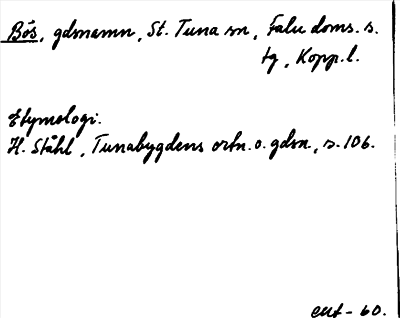 Bös, gdsnamn, St. Tuna sn, Falu doms. s.
tg, Kopp. l.
Etymologi.
H. Ståhl, Tunabygdens ortn. o. gdsn, s. 106.
EUt - 60.